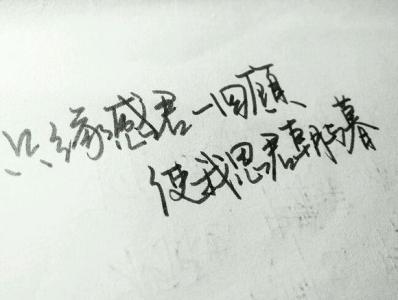 只缘感君一回顾
使我思君朝与暮